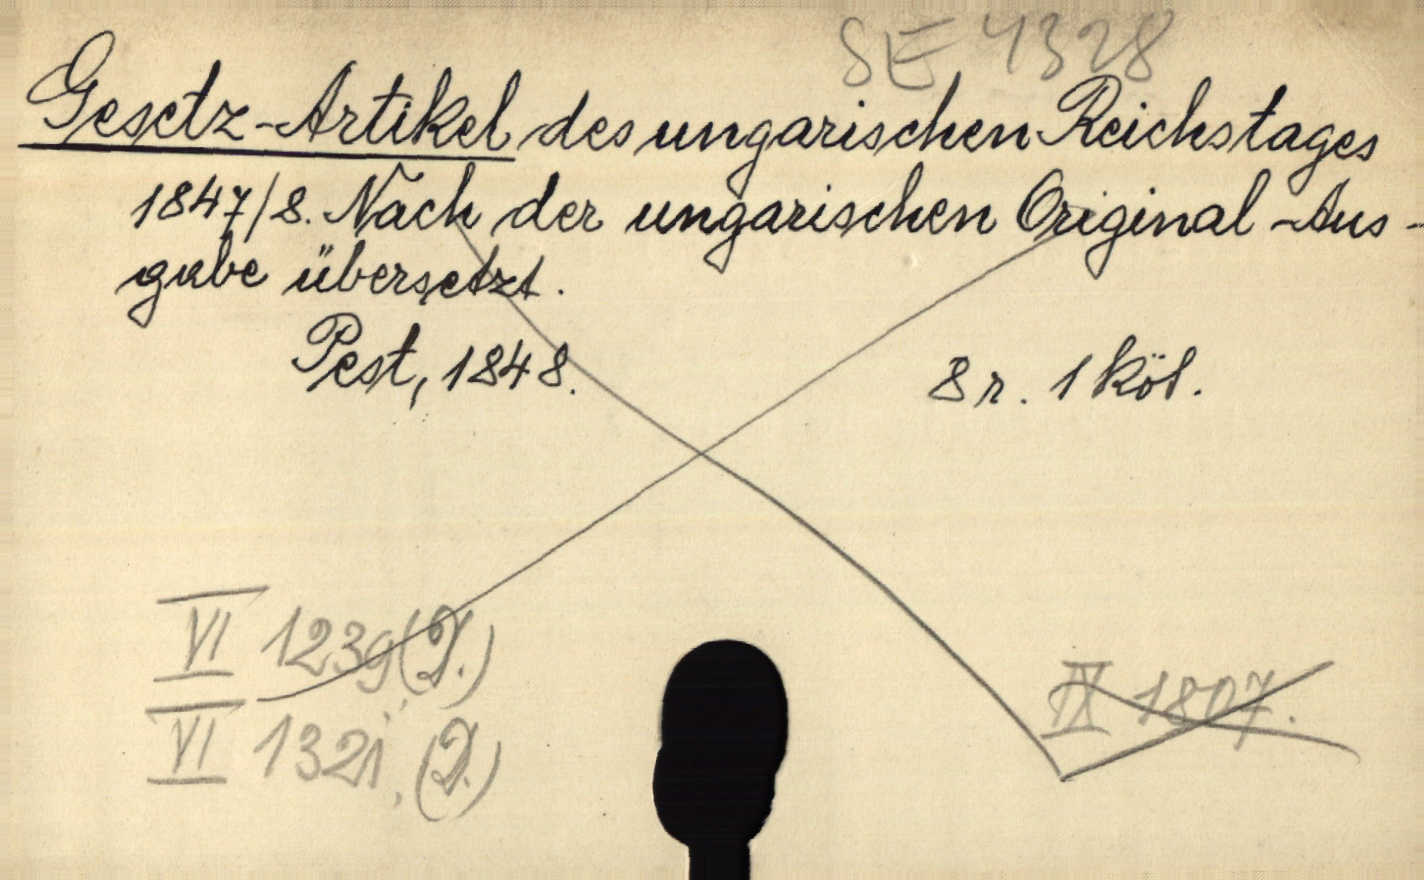 SE 4328
Gesetz-Artikel des ungarischen Reichstages
1847/8. Nach der ungarischen Original-Aus-
gabe übersetzt.
Pest, 1848. 8r. 1 köt.
VI 1239 (D.)
IX 1807.
VI 1321, (D.)